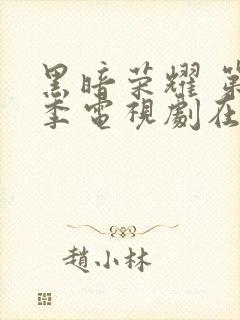 黑暗荣耀 第
季電視劇在
趙小林